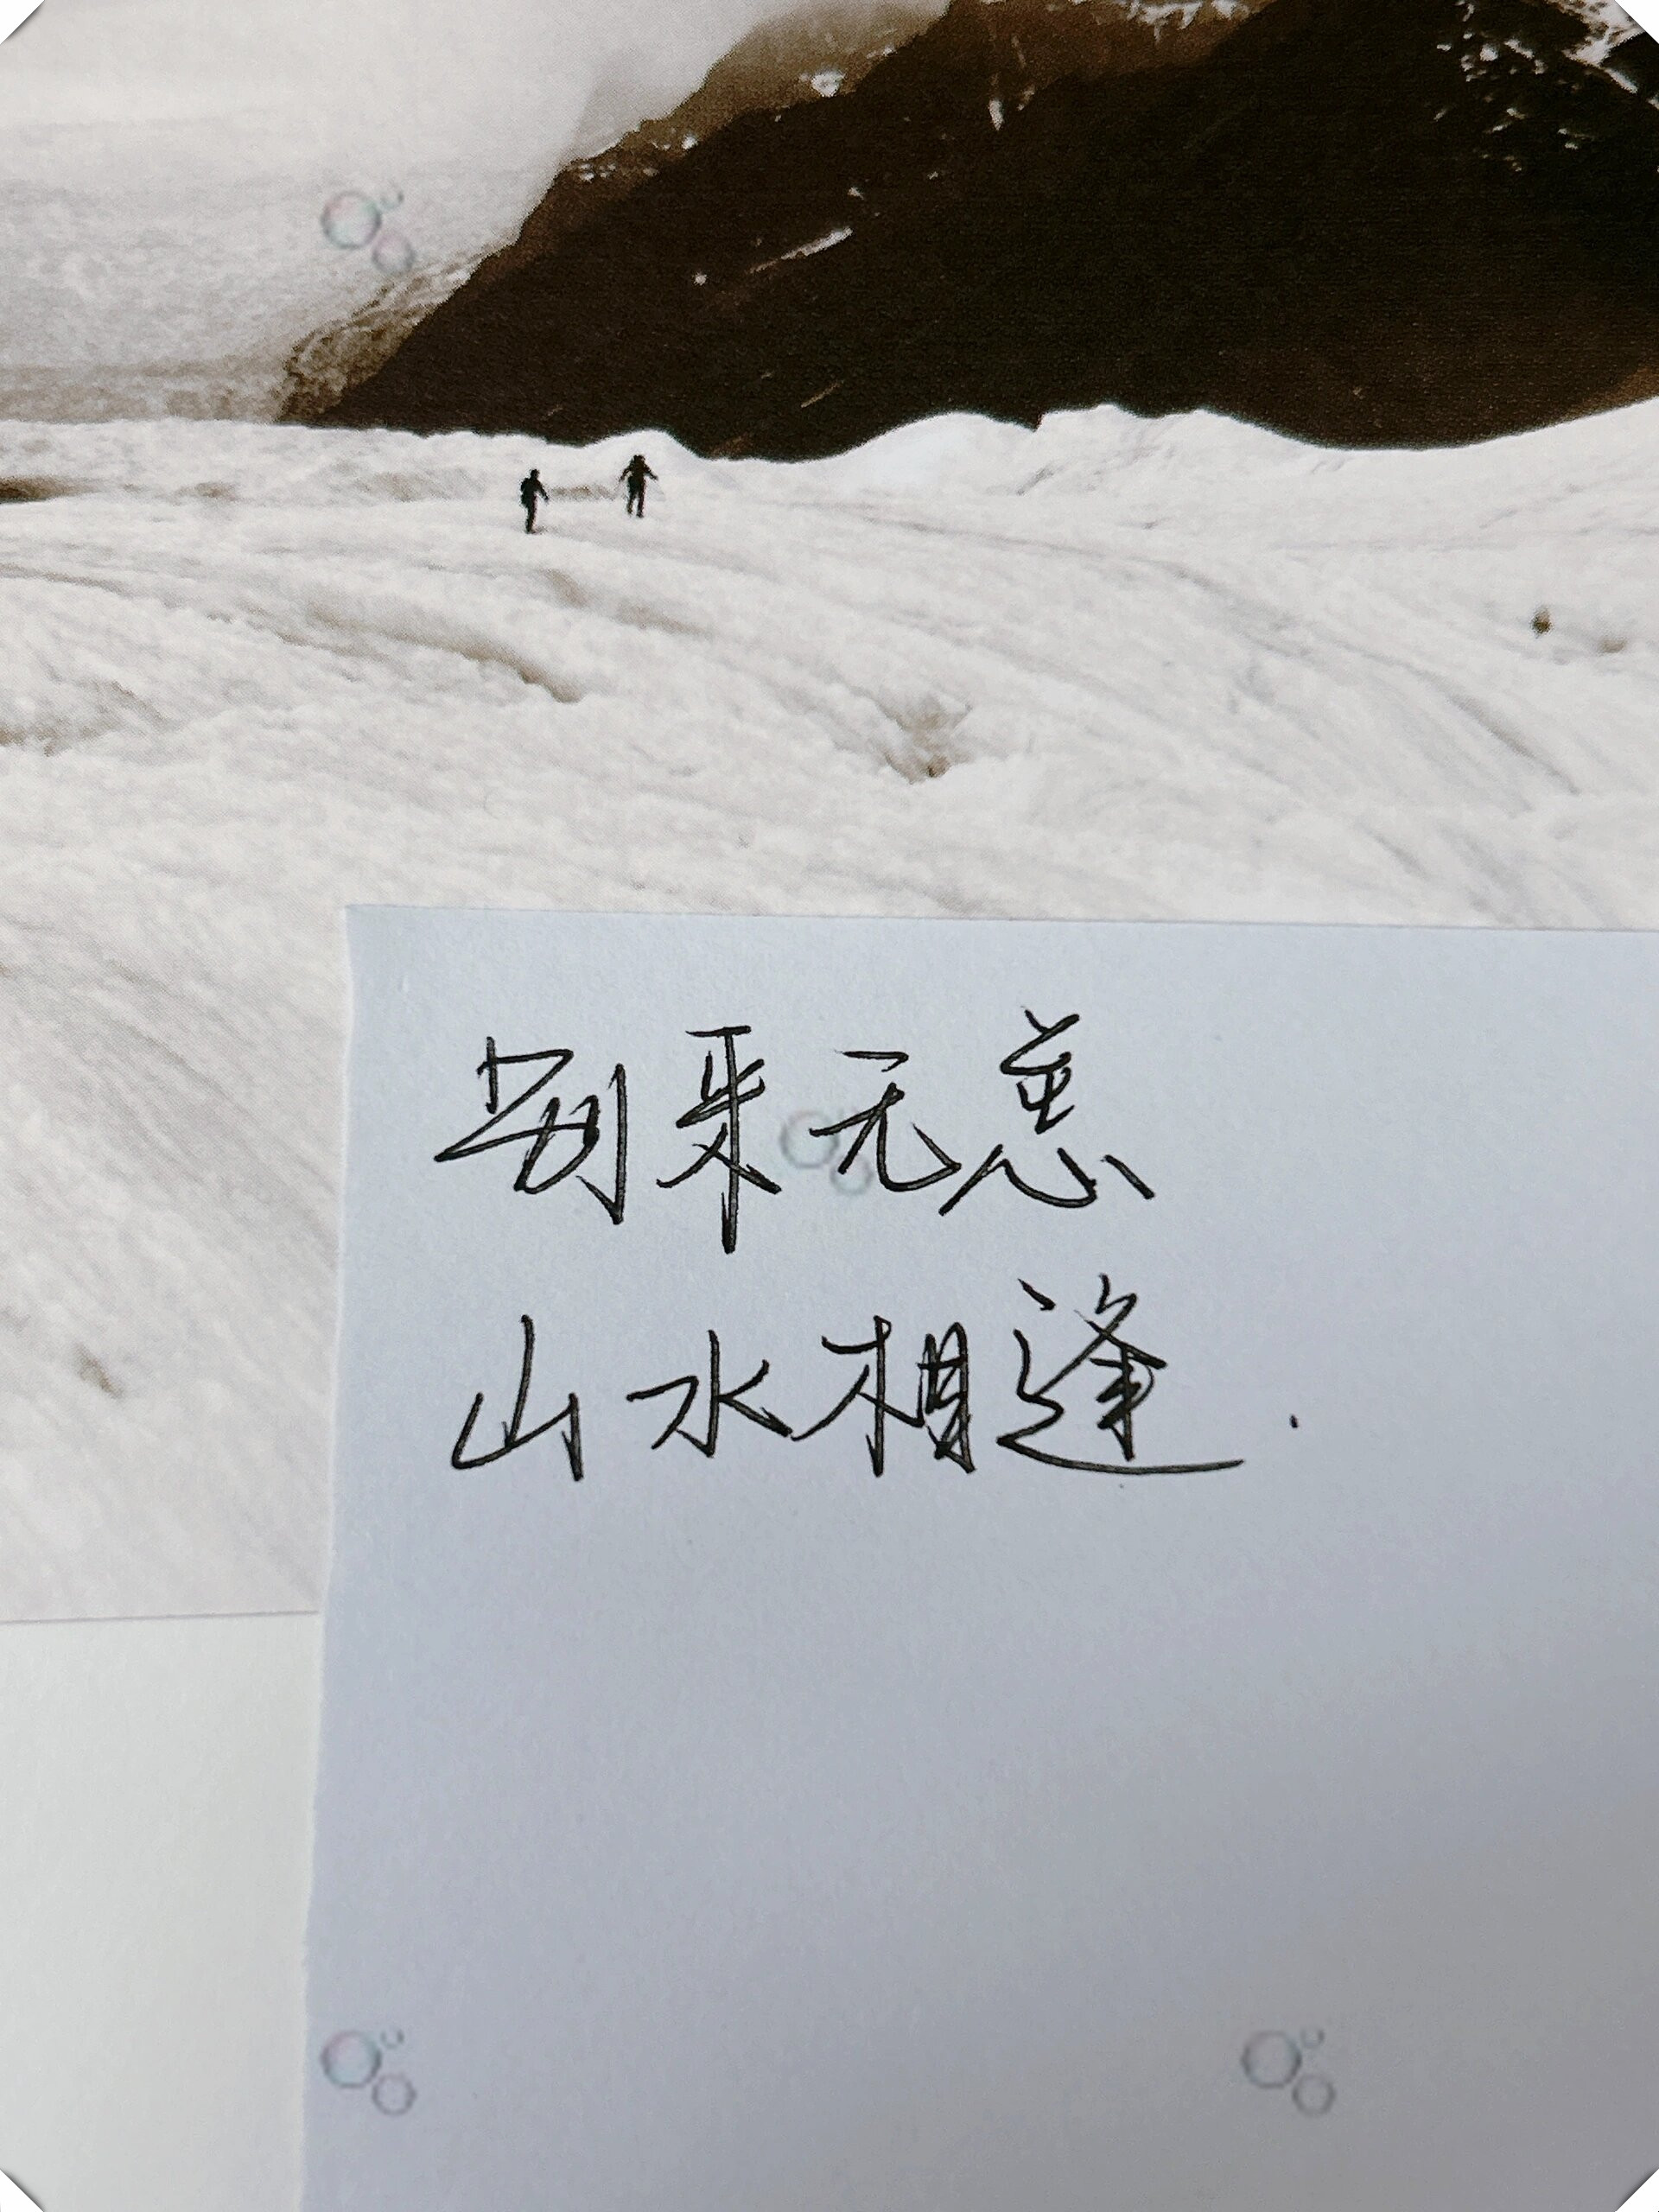 别来无恙
山水相逢.